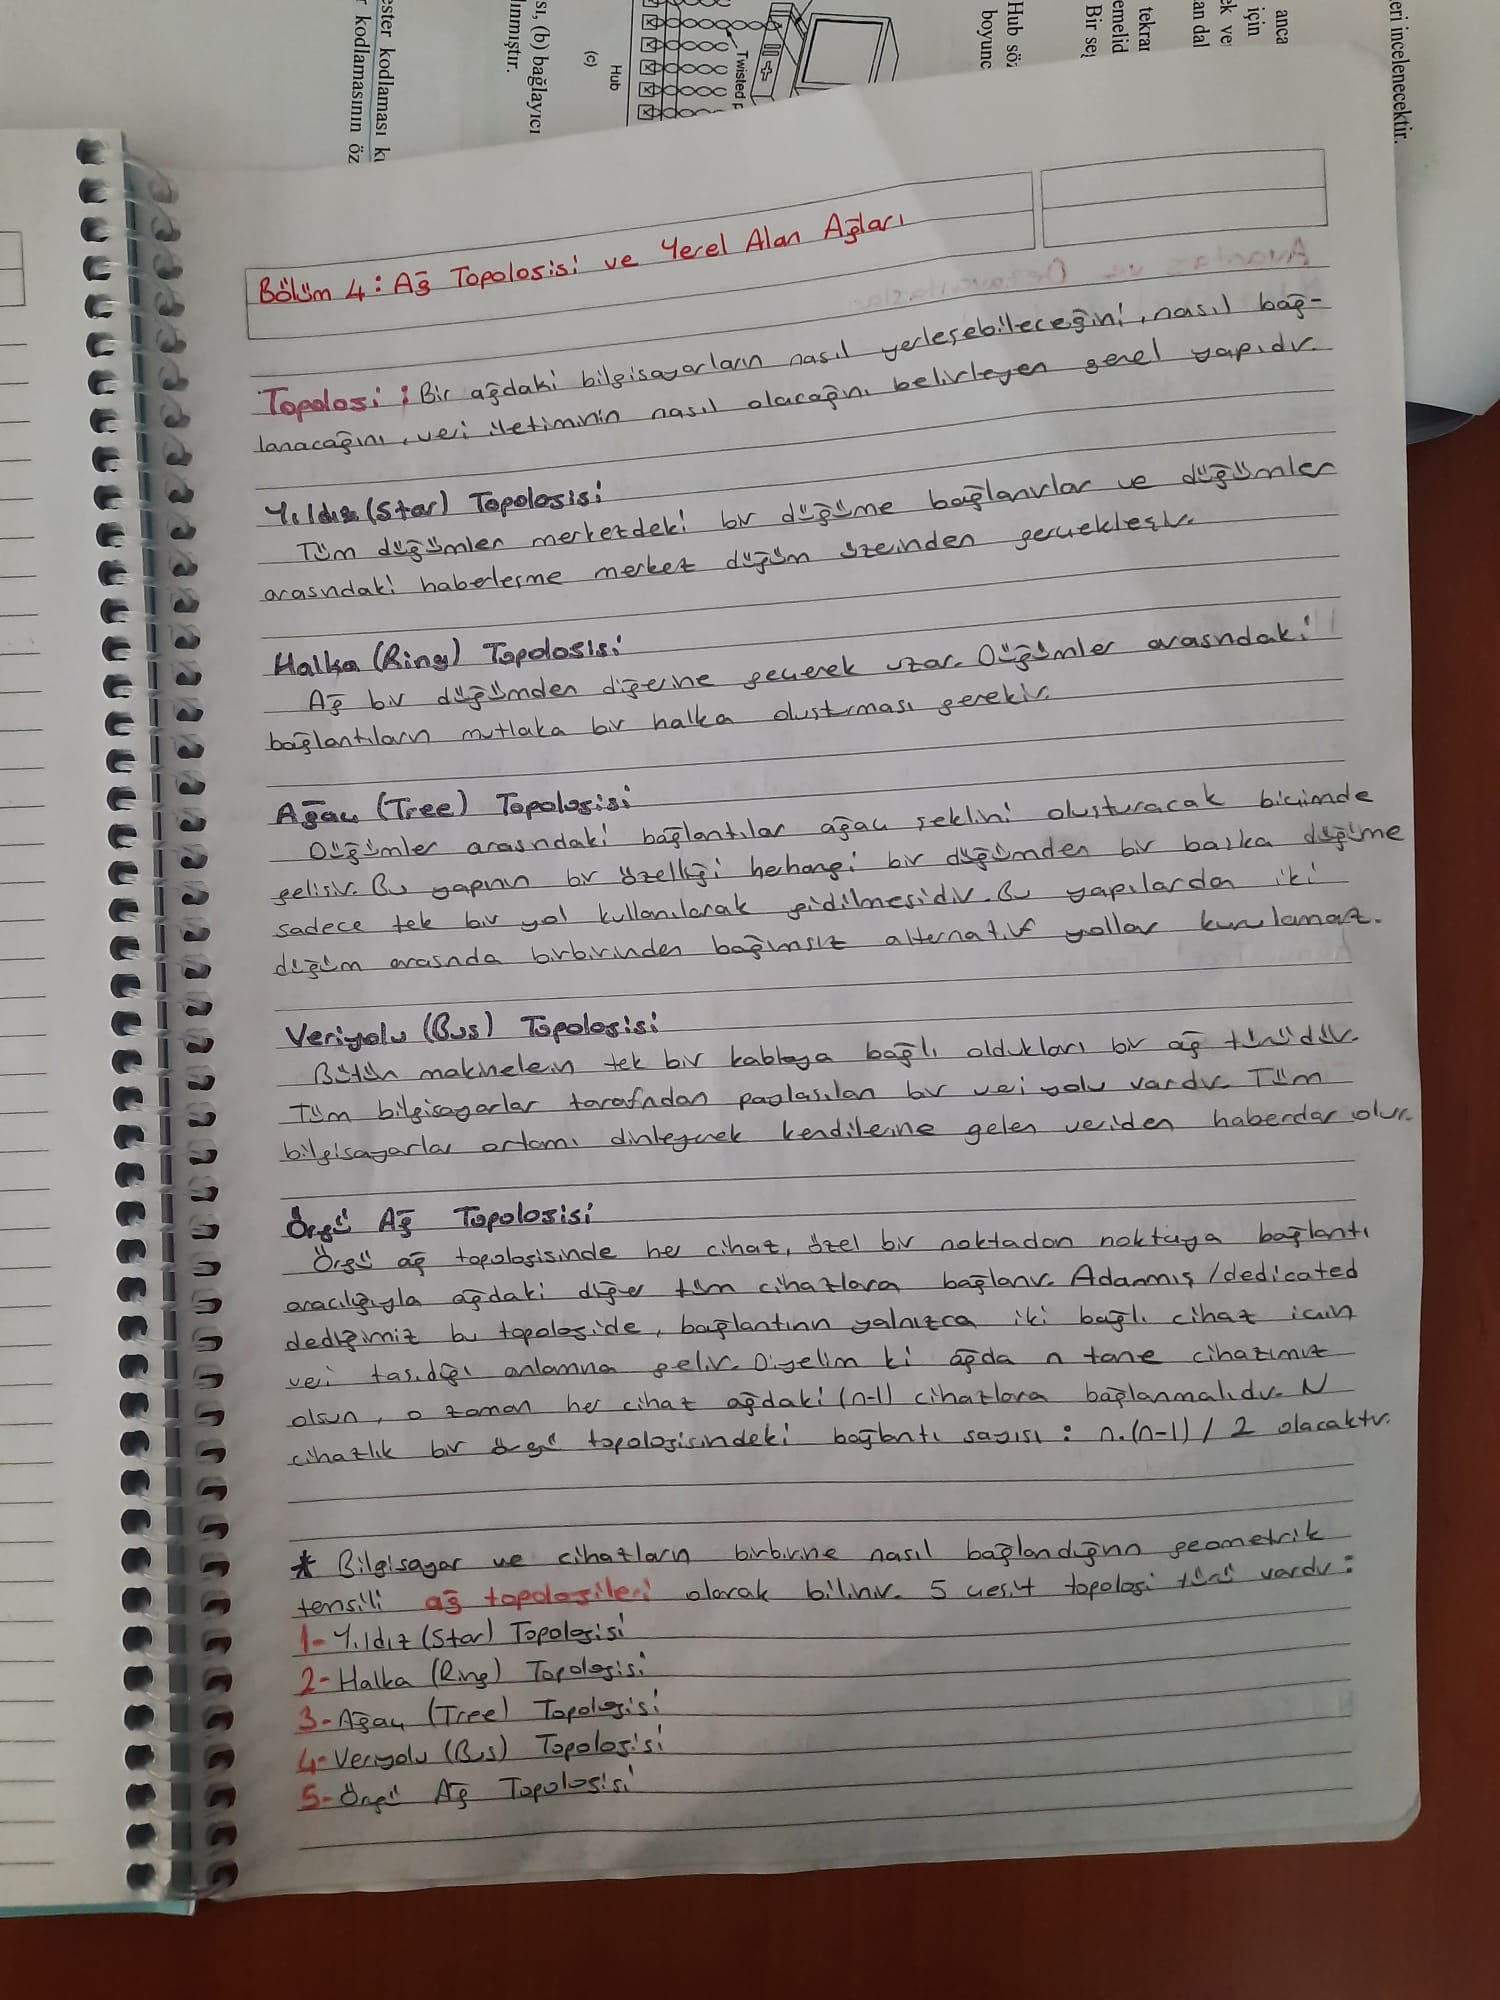 ester kodlaması kı
r kodlamasının öz
sı, (b) bağlayıcı
lınmıştır.
(c)
Hub
Twisted p
Hub söz
boyunc
tekrar
emelid
Bir se
anca
için
ek ve
an dal
eri incelenecektir.
Bölüm 4: Ağ Topolojisi ve Yerel Alan Ağları
Topoloji: Bir ağdaki bilgisayarların nasıl yerleşebileceğini, nasıl bağ-
lanacağını, veri iletiminin nasıl olacağını belirleyen genel yapıdır.
Yıldız (Star) Topolojisi
Tüm düğümler merkezdeki bir düğüme bağlanırlar ve düğümler
arasındaki haberleşme merkez düğüm üzerinden gerçekleşir.
Halka (Ring) Topolojisi
Ağ bir düğümden diğerine geçerek uzar. Düğümler arasındaki
bağlantıların mutlaka bir halka oluşturması gerekir.
Ağaç (Tree) Topolojisi
Düğümler arasındaki bağlantılar ağaç şeklini oluşturacak biçimde
gelişir. Bu yapının bir özelliği herhangi bir düğümden bir başka düğüme
sadece tek bir yol kullanılarak gidilmesidir. Bu yapılarda iki
düğüm arasında birbirinden bağımsız alternatif yollar kurulamaz.
Veriyolu (Bus) Topolojisi
Bütün makinelerin tek bir kabloya bağlı oldukları bir ağ türüdür.
Tüm bilgisayarlar tarafından paylaşılan bir veri yolu vardır. Tüm
bilgisayarlar ortamı dinleyerek kendilerine gelen veriden haberdar olur.
Örgü Ağ Topolojisi
Örgü ağ topolojisinde her cihaz, özel bir noktadan noktaya bağlantı
aracılığıyla ağdaki diğer tüm cihazlara bağlanır. Adanmış/dedicated
dediğimiz bu topolojide, bağlantının yalnızca iki bağlı cihaz için
veri taşıdığı anlamına gelir. Diyelim ki ağda n tane cihazımız
olsun, o zaman her cihaz ağdaki (n-1) cihazlara bağlanmalıdır. N
cihazlık bir örgü topolojisindeki bağlantı sayısı : n.(n-1) / 2 olacaktır.
* Bilgisayar ve cihazların birbirine nasıl bağlandığının geometrik
temsili ağ topolojileri olarak bilinir. 5 çeşit topoloji türü vardır:
1- Yıldız (Star) Topolojisi
2- Halka (Ring) Topolojisi
3- Ağaç (Tree) Topolojisi
4- Veriyolu (Bus) Topolojisi
5- Örgü Ağ Topolojisi